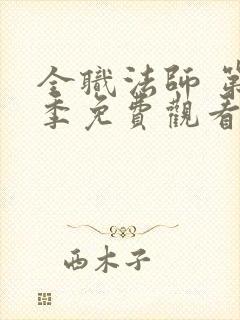 全職法師 第
季免費觀看
西木子